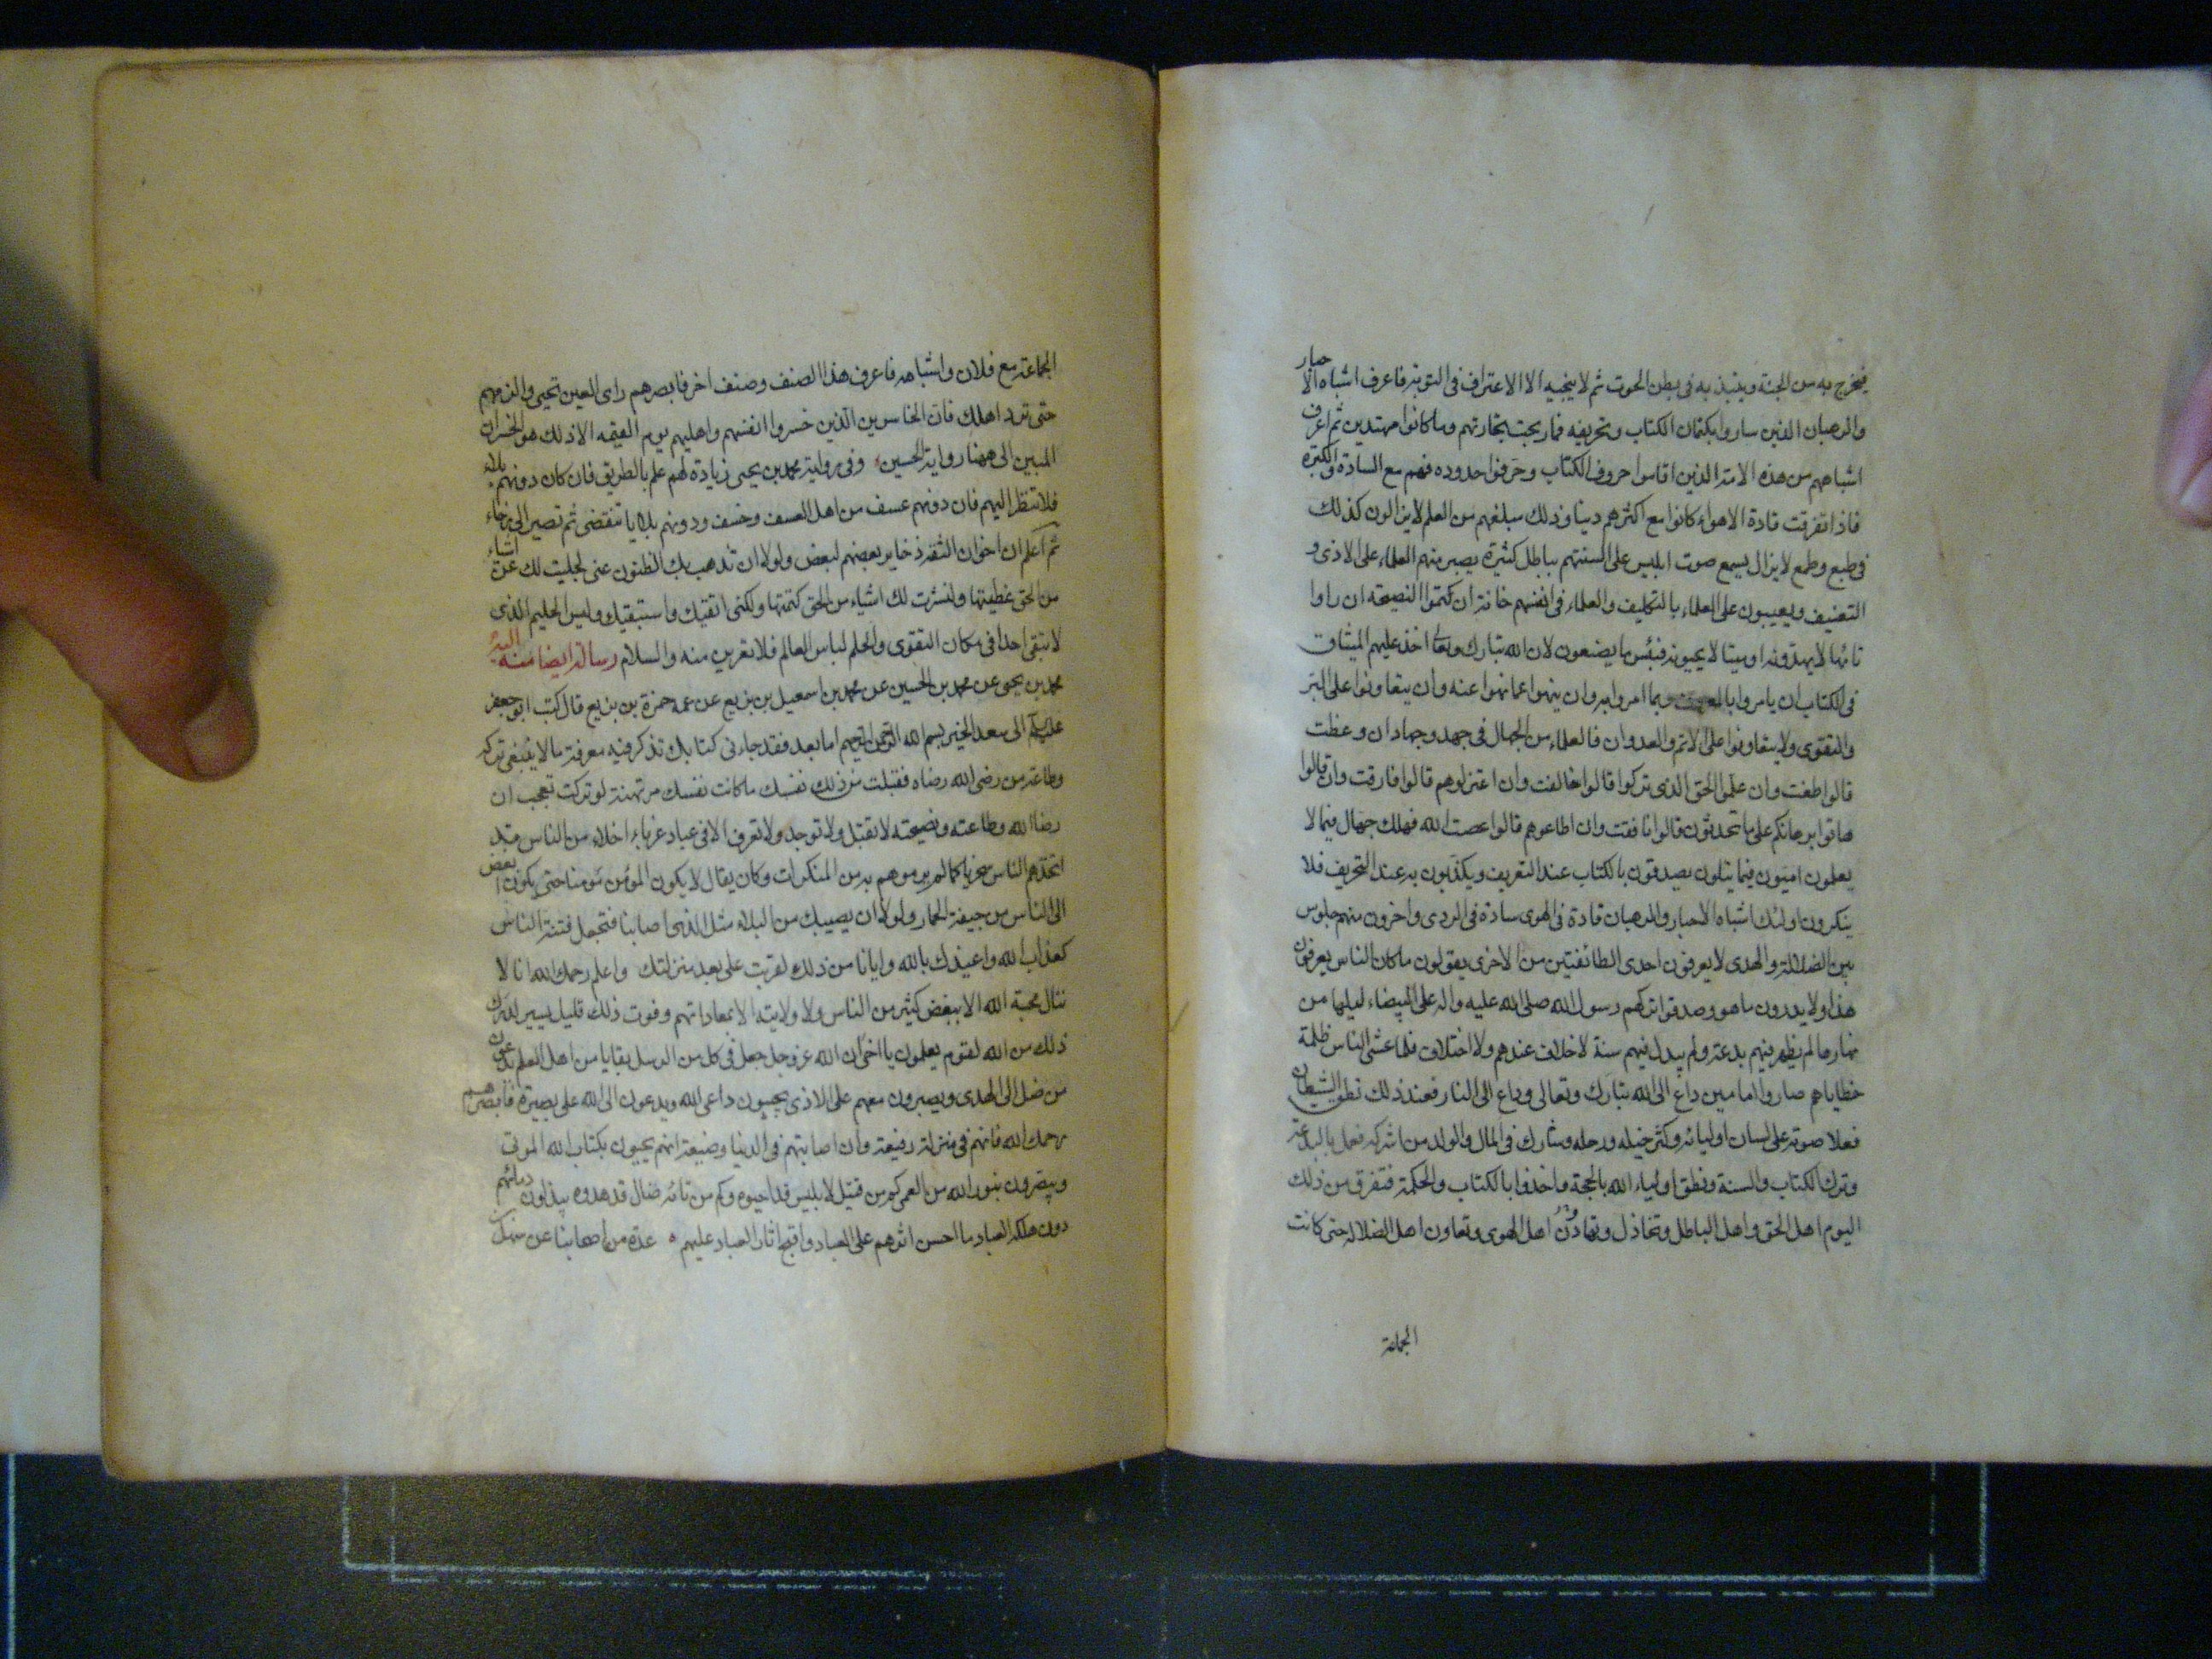 فيخرج به من الجنة وينبذ به في بطن الحوت ثم لا ينجيه الا الاعتراف في التوبة فاعرف اشباه الاحبار
والرهبان الذين ساروا بكتمان الكتاب وتحريفه فما ربحت تجارتهم وما كانوا مهتدين ثم اعرف
اشباههم من هذه الامة الذين اقاموا حروف الكتاب وحرفوا حدوده فهم مع السادة والكبرة
فاذا تفرقت قادة الاهواء كانوا مع اكثرهم دينا وذلك مبلغهم من العلم لا يزالون كذلك
في طبع وطمع لا يزال يسمع صوت ابليس على السنتهم بباطل كثيرة يصبر منهم العلماء على الاذى و
التعنيف ويعيبون على العلماء بالتكليف والعلماء في انفسهم خانة ان كتموا النصيحة ان راوا
تائها لا يهدونه او ميتا لا يحيونه فبئس ما يصنعون لان الله تبارك وتعالى اخذ عليهم الميثاق
في الكتاب ان يامروا بالمعروف وبما امروا به وان ينهوا عما نهوا عنه وان يتعاونوا على البر
والتقوى ولا يتعاونوا على الاثم والعدوان فالعلماء من الجهال في جهد وجهاد ان وعظت
قالوا طغت وان علموا الحق الذي تركوا قالوا خالفت وان اعتزلوهم قالوا فارقت وان قالوا
هاتوا برهانكم على ما تحدثون قالوا نافقت وان اطاعوهم قالوا عصت الله فهلك جهال فيما لا
يعلمون اميون فيما يتلون يصدقون بالكتاب عند التعريف ويكذبون به عند التحريف فلا
ينكرون اولئك اشباه الاحبار والرهبان قادة في الهوى سادة في الردى واخرون منهم جلوس
بين الضلالة والهدى لا يعرفون احدى الطائفتين من الاخرى يقولون ما كان الناس يعرفون
هذا ولا يدرون ما هو وصدقوا تركهم رسول الله صلى الله عليه واله على البيضاء ليلها من
نهارها لم يظهر فيهم بدعة ولم يبدل فيهم سنة لا خلاف عندهم ولا اختلاف فلما غشى الناس ظلمة
خطاياهم صاروا امامين داع الى الله تبارك وتعالى وداع الى النار فعند ذلك نطق الشيطان
فعلا صوته على لسان اوليائه وكثر خيله ورجله وشارك في المال والولد من اشركه فعمل بالبدعة
وترك الكتاب والسنة ونطق اولياء الله بالحجة واخذوا بالكتاب والحكمة فتفرق من ذلك
اليوم اهل الحق واهل الباطل وتخاذل وتهادن اهل الهوى وتعاون اهل الضلالة حتى كانت
الجماعة
الجماعة مع فلان واشباهه فاعرف هذا الصنف وصنف اخر فابصرهم راى العين تحيى والزمهم
حتى ترد اهلك فان الخاسرين الذين خسروا انفسهم واهليهم يوم القيمه الا ذلك هو الخسران
المبين الى ههنا رواية الحسين وفي رواية محمد بن يحيى زيادة لهم علم بالطريق فان كان دونهم بلاء
فلا تنظر اليهم فان دونهم عسف من اهل العسف وخسف ودونهم بلايا تنقضى ثم تصير الى رخاء
ثم اعلم ان اخوان الثقة ذخاير بعضهم لبعض ولولا ان تذهب بك الظنون عنى لجليت لك عن اشياء
من الحق غطيتها ولنشرت لك اشياء من الحق كتمتها ولكنى اتقيك واستبقيك وليس الحليم الذى
لا يتقى احدا في مكان التقوى والحلم لباس العالم فلا تعرين منه والسلام رسالة ايضا منه اليه
محمد بن يحيى عن محمد بن الحسين عن محمد بن اسمعيل بن بزيع عن عمه حمزة بن بزيع قال كتب ابو جعفر
عليه السلام الى سعد الخير بسم الله الرحمن الرحيم اما بعد فقد جاءنى كتابك تذكر فيه معرفة ما لا ينبغى تركه
وطاعة من رضى الله رضاه فقبلت من ذلك نفسك ما كانت نفسك مرتهنة لو تركت تعجب ان
رضا الله وطاعته ونصيحته لا تقبل ولا توجد ولا تعرف الا في عباد غرباء اخلاء من الناس قد
اتخذهم الناس سخريا كما لم يرموهم به من المنكرات وكان يقال لا يكون المؤمن مؤمنا حتى يكون ابغض
الى الناس من جيفة الحمار ولولا ان يصيبك من البلاء مثل الذى اصابنا فتجعل فتنة الناس
كعذاب الله واعيذك بالله وايانا من ذلك لقربت على بعد منزلتك واعلم رحمك الله انا لا
ننال محبة الله الا ببغض كثير من الناس ولا ولايته الا بمعاداتهم وفوت ذلك قليل يسير لدرك
ذلك من الله لقوم يعلمون يا اخى ان الله عز وجل جعل في كل من الرسل بقايا من اهل العلم يدعون
من ضل الى الهدى ويصبرون معهم على الاذى يجيبون داعى الله ويدعون الى الله على بصيرة فابصرهم
رحمك الله فانهم في منزلة رفيعة وان اصابتهم في الدنيا وضيعة انهم يحيون بكتاب الله الموتى
ويبصرون بنور الله من العمى كم من قتيل لابليس قد احيوه وكم من تائه ضال قد هدوه يبذلون دمائهم
دون هلكة العباد ما احسن اثرهم على العباد واقبح اثار العباد عليهم عدة من اصحابنا عن سهل